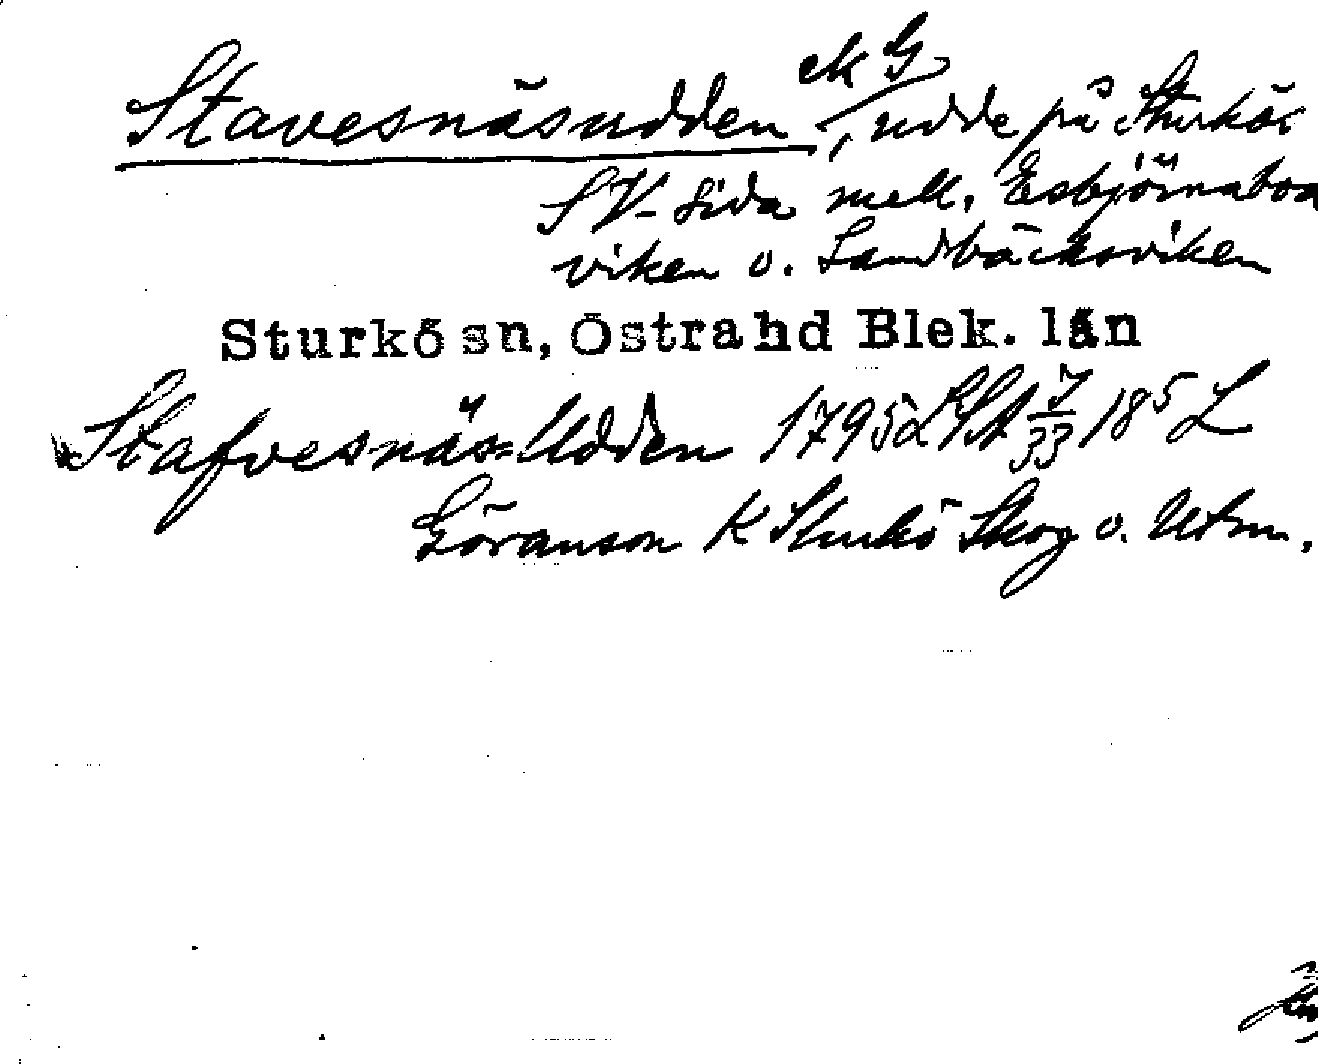 Stavesnäsudden ek G, udde på Sturkös
SV-sida mell. Esbjörnabod
viken o. Sandbäcksviken
Sturkö sn, Östra hd Blek. län
Stafvesnäs=Udden 1795 LSA 18⁵ L
Göranson K Sturkö Skog o. Utm.